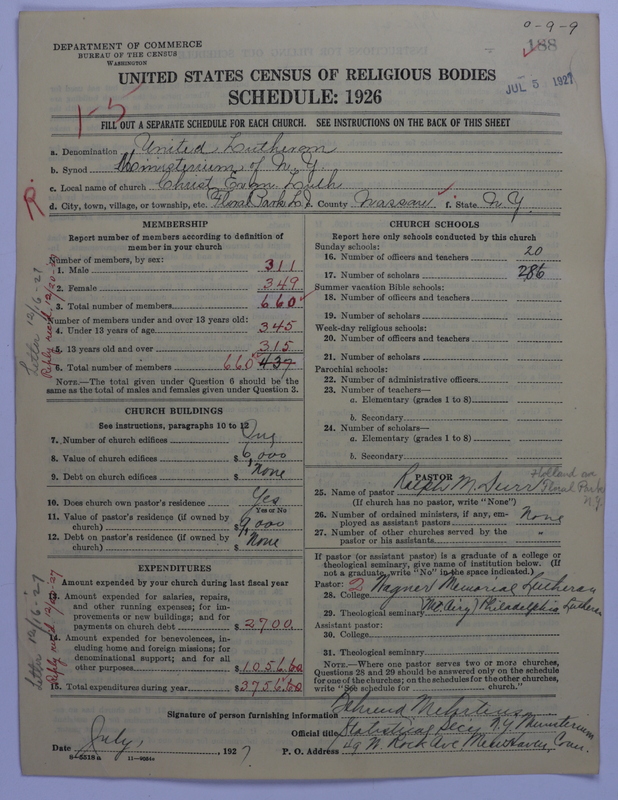 0-9-9
188
DEPARTMENT OF COMMERCE
BUREAU OF THE CENSUS
WASHINGTON
JUL 5 1927
UNITED STATES CENSUS OF RELIGIOUS BODIES
SCHEDULE: 1926
1-5
FILL OUT A SEPARATE SCHEDULE FOR EACH CHURCH. SEE INSTRUCTIONS ON THE BACK OF THIS SHEET
a. Denomination United Lutheran
b. Synod Ministerium of N.Y.
c. Local name of church Christ Evan. Luth
R.
d. City, town, village, or township, etc. Floral Park L.I. e. County Nassau f. State N.Y.
MEMBERSHIP
Report number of members according to definition of
member in your church
Number of members, by sex:
1. Male 311
2. Female 349
3. Total number of members 660
Number of members under and over 13 years old:
4. Under 13 years of age 345
5. 13 years old and over 315
6. Total number of members 660 437
NOTE.—The total given under Question 6 should be the
same as the total of males and females given under Question 3.
Letter 12/16-27
Reply rec'd 12/20-27
CHURCH BUILDINGS
See instructions, paragraphs 10 to 12
7. Number of church edifices One
8. Value of church edifices $ 6,000
9. Debt on church edifices $ None
10. Does church own pastor's residence Yes
Yes or No
11. Value of pastor's residence (if owned by
church) $ 9,000
12. Debt on pastor's residence (if owned by
church) $ None
EXPENDITURES
Amount expended by your church during last fiscal year
13. Amount expended for salaries, repairs,
and other running expenses; for im-
provements or new buildings; and for
payments on church debt $ 2700.
14. Amount expended for benevolences, in-
cluding home and foreign missions; for
denominational support; and for all
other purposes $ 1056.60
15. Total expenditures during year $ 3756.60
Letter 12/16-27
Reply rec'd 12/20-27
CHURCH SCHOOLS
Report here only schools conducted by this church
Sunday schools:
16. Number of officers and teachers 20
17. Number of scholars 286
Summer vacation Bible schools:
18. Number of officers and teachers
19. Number of scholars
Week-day religious schools:
20. Number of officers and teachers
21. Number of scholars
Parochial schools:
22. Number of administrative officers
23. Number of teachers—
a. Elementary (grades 1 to 8)
b. Secondary
24. Number of scholars—
a. Elementary (grades 1 to 8)
b. Secondary
PASTOR
25. Name of pastor Ralph M. Durr
Holland av
Floral Park
N.Y.
(If church has no pastor, write "None")
26. Number of ordained ministers, if any, em-
ployed as assistant pastors None
27. Number of other churches served by the
pastor or his assistants "
If pastor (or assistant pastor) is a graduate of a college or
theological seminary, give name of institution below. (If
not a graduate, write "No" in the space indicated.)
Pastor: 2
28. College Wagner Memorial Lutheran
29. Theological seminary (Mt. Airy) Philadelphia Lutheran
Assistant pastor:
30. College
31. Theological seminary
NOTE.—Where one pastor serves two or more churches,
Questions 28 and 29 should be answered only on the schedule
for one of the churches; on the schedules for the other churches,
write "See schedule for church."
Signature of person furnishing information Behrend Mehrtens
Official title Statistical Sec'y N.Y. Ministerium
Date July, 1927 P. O. Address 49 N. Rock Ave New Haven, Conn.
6-5518a 11-9051a